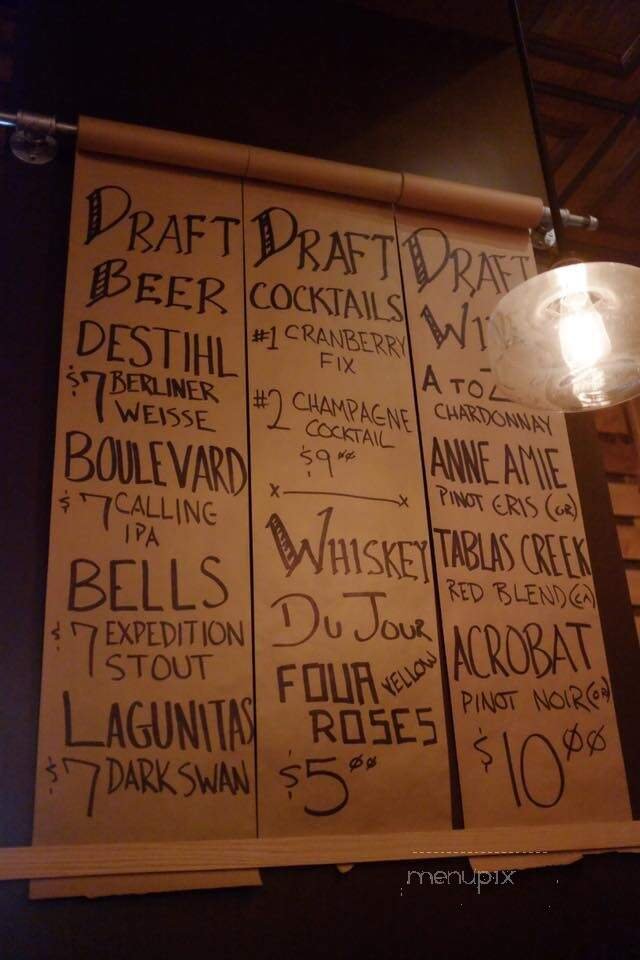 DRAFT
BEER
DESTIHL
$7 BERLINER
WEISSE
BOULEVARD
$7 CALLING
IPA
BELLS
$7 EXPEDITION
STOUT
LAGUNITAS
$7 DARK SWAN
DRAFT
COCKTAILS
#1 CRANBERRY
FIX
#2 CHAMPAGNE
COCKTAIL
$9 00
x x
WHISKEY
DU JOUR
FOUR YELLOW
ROSES
$5 00
DRAFT
WI
A TO Z
CHARDONNAY
ANNE AMIE
PINOT GRIS (OR)
TABLAS CREEK
RED BLEND (CA)
ACROBAT
PINOT NOIR (OR)
$10 00
menupix